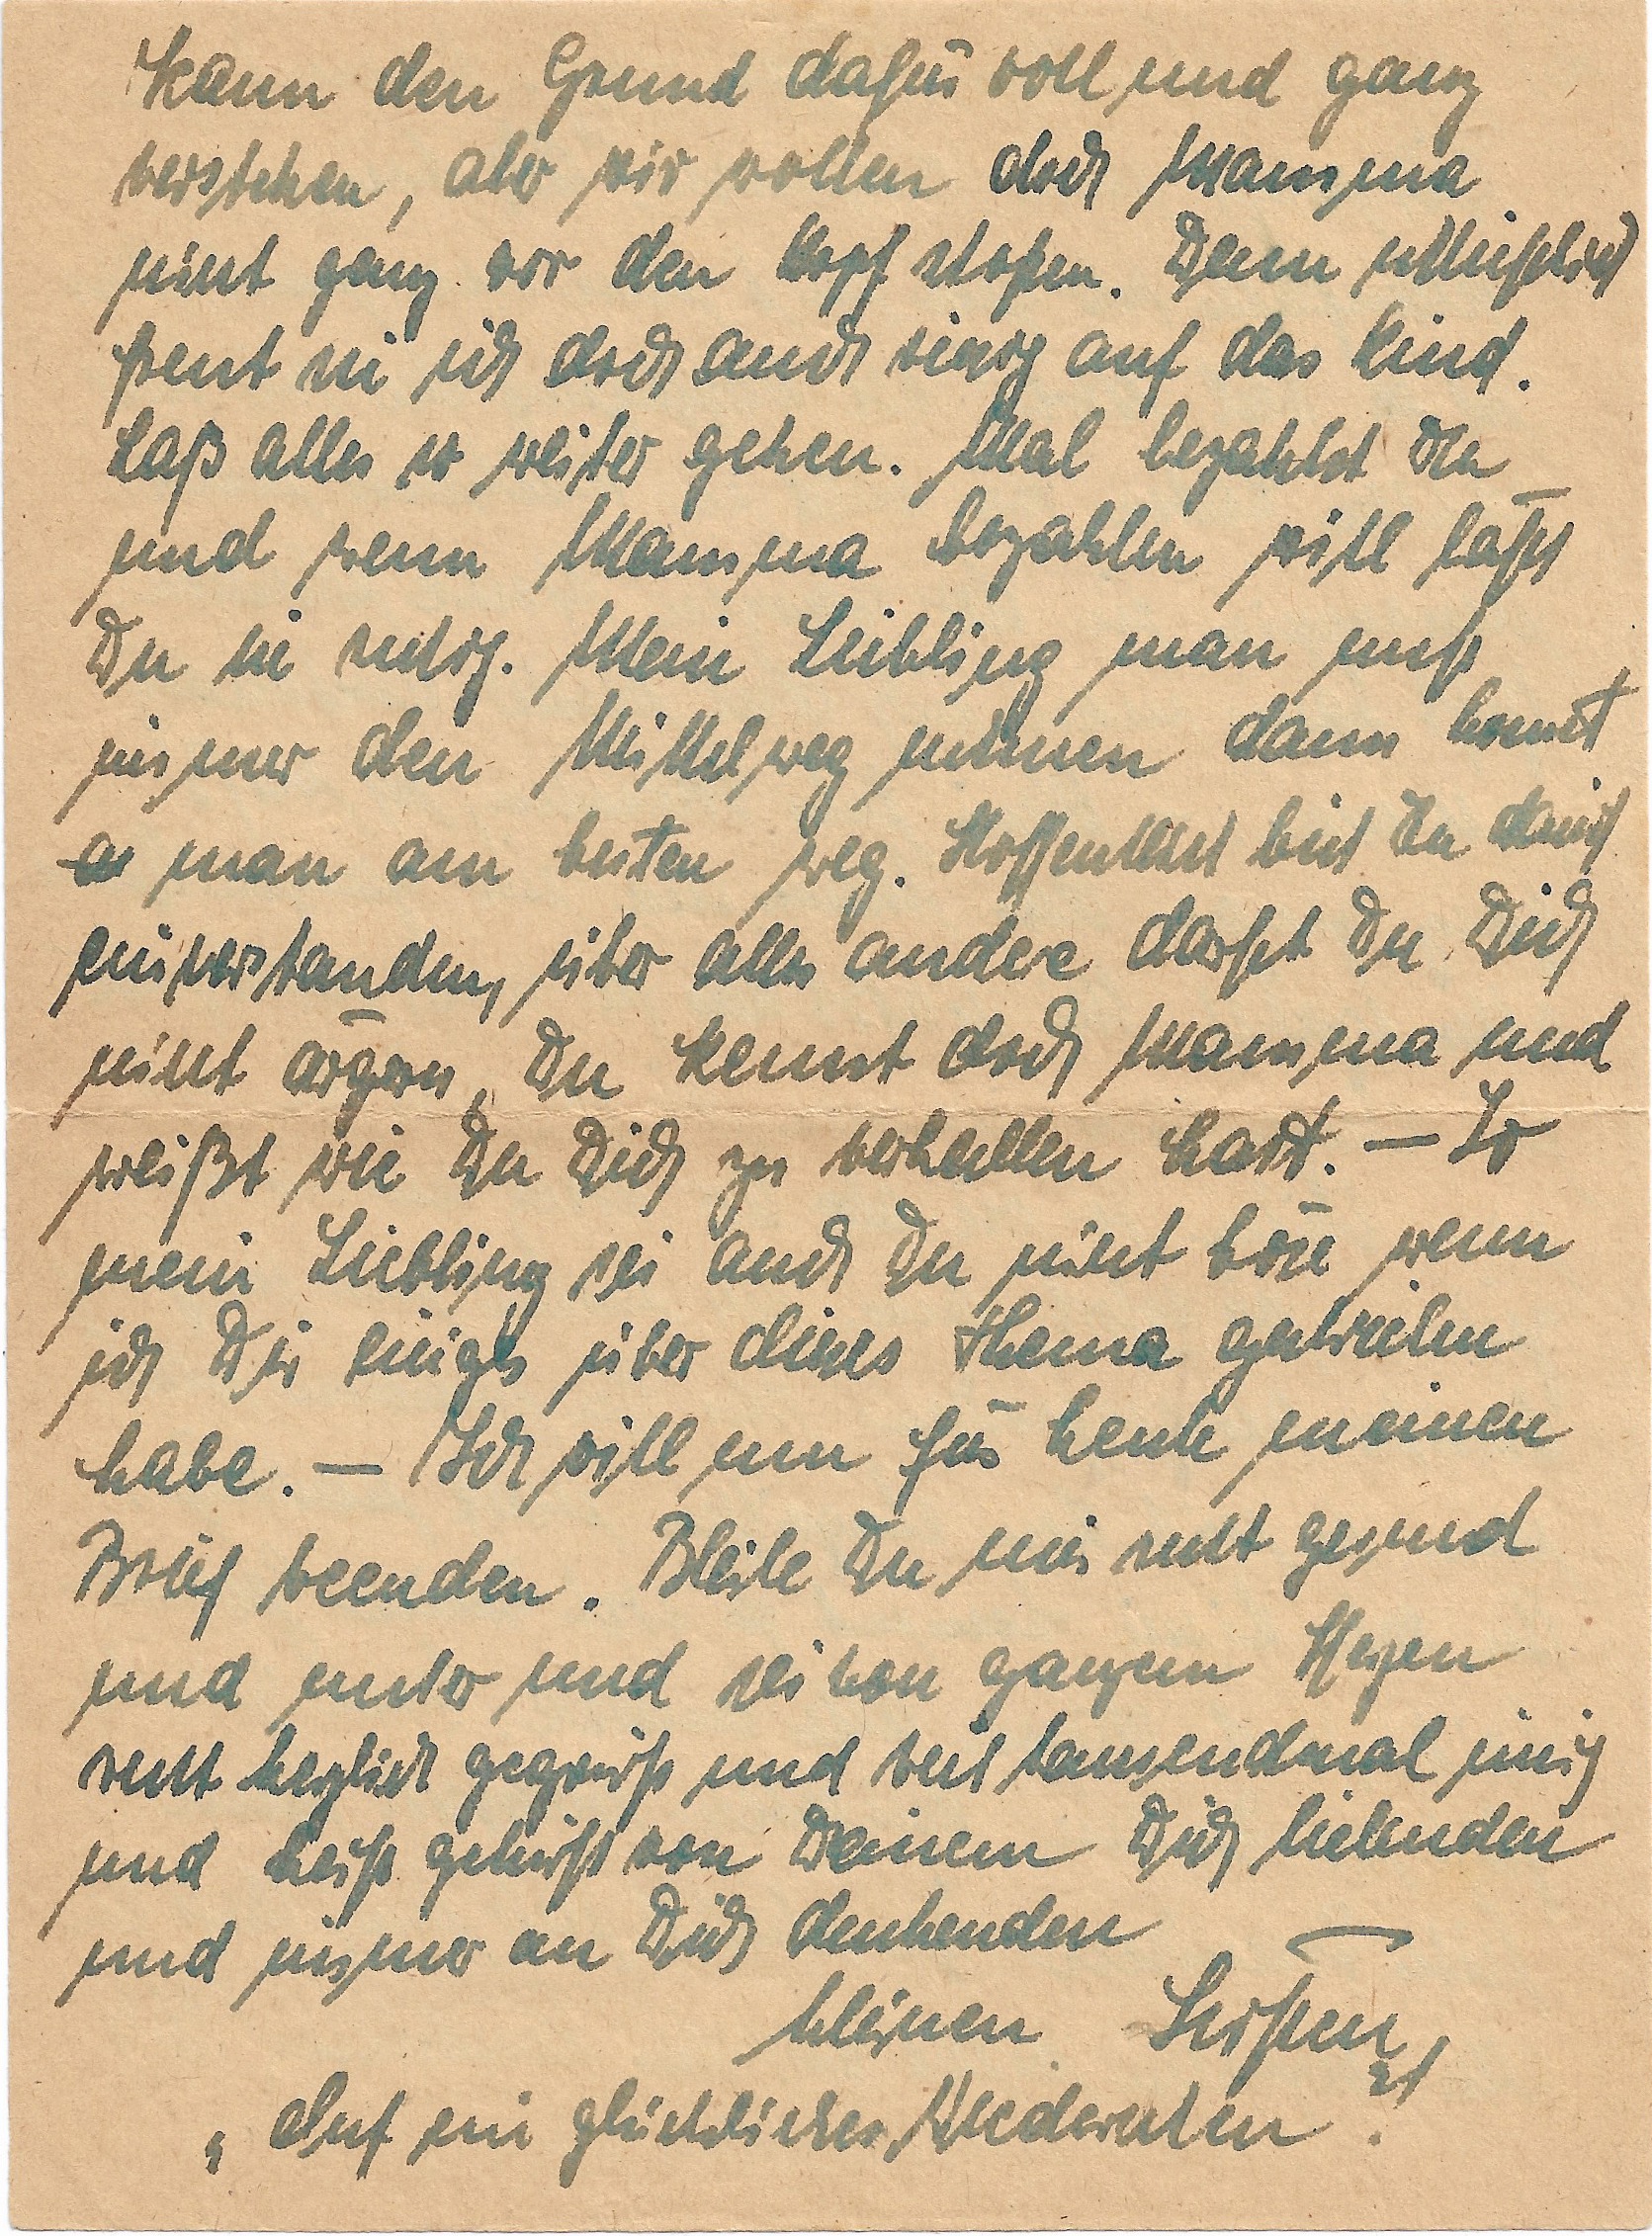 kann den Grund dafür voll und ganz
verstehen, aber wir wollen doch Mamma
nicht ganz vor den Kopf stoßen. Denn schließlich
freut sie sich doch auch riesig auf das Kind.
Laß alles so weiter gehen. Mal bezahlst Du
und wenn Mamma bezahlen will läßt
Du sie ruhig. Mein Liebling man muß
immer den Mittelweg nehmen dann kommt
man am besten weg. Hoffentlich bist Du damit
einverstanden, über alles andere darfst Du Dich
nicht ärgern, Du kennst doch Mamma und
weißt wie Du Dich zu verhalten hast. — So
mein Liebling sei auch Du nicht böse wenn
ich Dir einiges über dieses Thema geschrieben
habe. — Ich will nun für heute meinen
Brief beenden. Bleibe Du mir recht gesund
und munter und sei von ganzem Herzen
recht herzlich gegrüßt und viel tausendmal innig
und heiß geküßt von Deinem Dich liebenden
und immer an Dich denkenden
kleinen
„Auf ein glückliches Wiedersehen"!